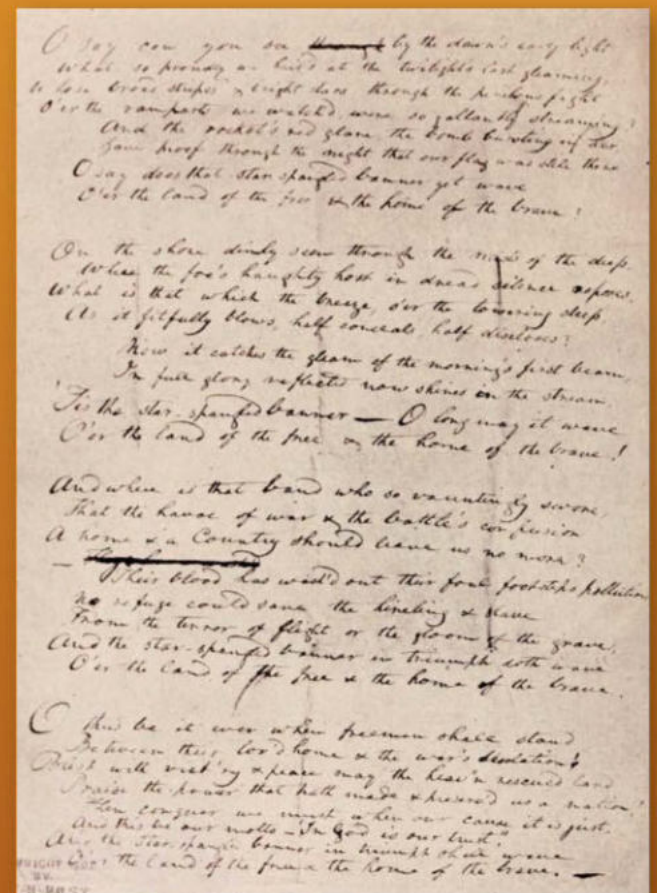 O say can you see ~~through~~ by the dawn's early light
What so proudly we hail'd at the twilight's last gleaming,
Whose broad stripes & bright stars through the perilous fight
O'er the ramparts we watch'd, were so gallantly streaming?
And the rocket's red glare, the bomb bursting in air,
Gave proof through the night that our flag was still there
O say does that star-spangled banner yet wave
O'er the land of the free & the home of the brave?
On the shore dimly seen through the mists of the deep,
Where the foe's haughty host in dread silence reposes,
What is that which the breeze, o'er the towering steep,
As it fitfully blows, half conceals, half discloses?
Now it catches the gleam of the morning's first beam,
In full glory reflected now shines in the stream,
'Tis the star-spangled banner — O long may it wave
O'er the land of the free & the home of the brave!
And where is that band who so vauntingly swore,
That the havoc of war & the battle's confusion
A home & a Country should leave us no more?
—
Their blood has wash'd out their foul footsteps pollution
No refuge could save the hireling & slave
From the terror of flight or the gloom of the grave,
And the star-spangled banner in triumph doth wave
O'er the land of the free & the home of the brave.
O thus be it ever when freemen shall stand
Between their lov'd home & the war's desolation!
Blest with vict'ry & peace may the heav'n rescued land
Praise the power that hath made & preserv'd us a nation!
Then conquer we must, when our cause it is just,
And this be our motto — "In God is our trust,"
And the star-spangled banner in triumph shall wave
O'er the land of the free & the home of the brave. —